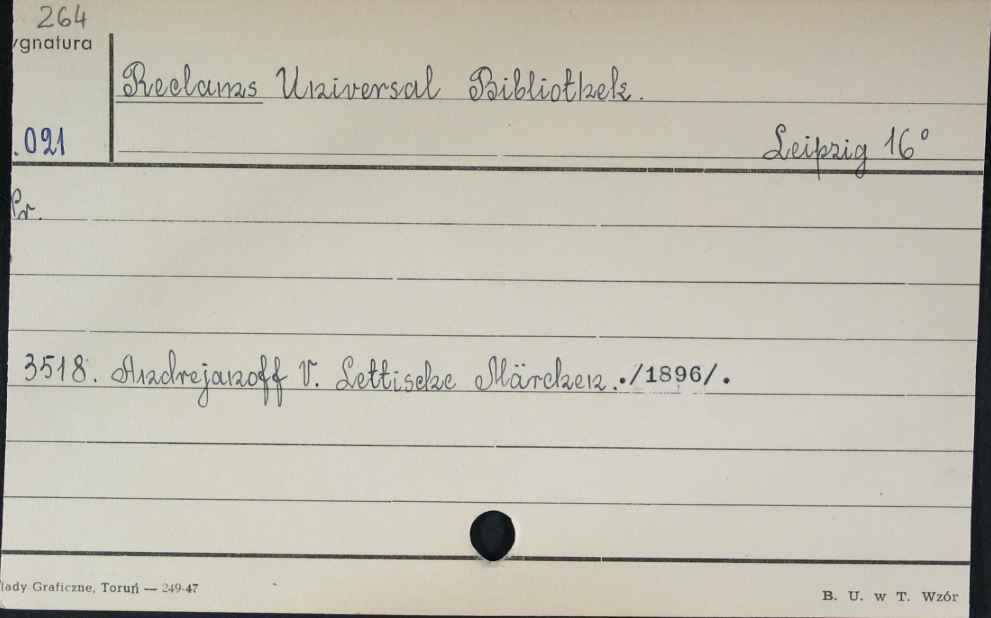 264
ygnatura
Reclams Universal Bibliothek.
.021
Leipzig 16°
Pr.
3518. Andrejanoff V. Lettische Märchen../1896/.
łady Graficzne, Toruń — 249-47
B. U. w T. Wzór